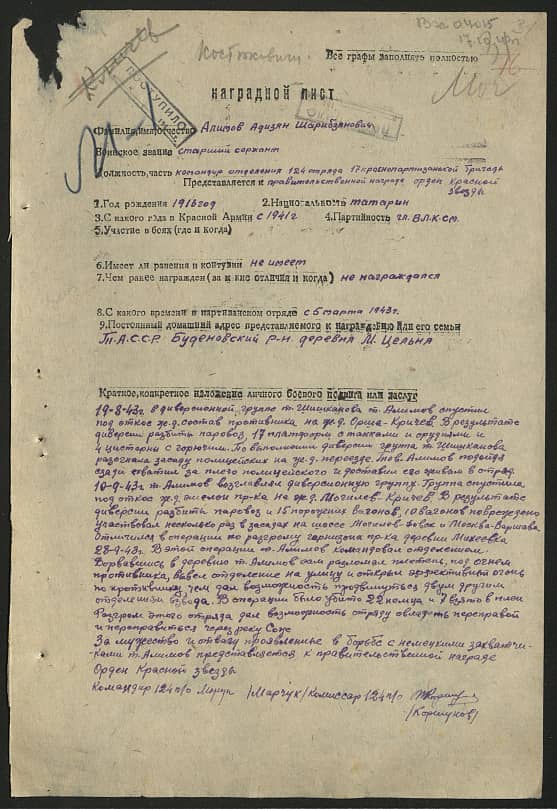 Костюкович
Вх 04015
Все графы заполнять полностью
Кричев
ПОСТУПИЛО
М-1
Мог
наградной лист
Фамилия,имя,отчество Алимов Адизян Шарибзянович
Воинское звание старший сержант
Должность,часть командир отделения 124 отряда 17 краснопартизанской бригады
Представляется к правительственной награде орден Красной
звезды
1.Год рождения 1916 год 2.Национальность татарин
3.С какого года в Красной Армии с 1941г 4.Партийность чл. ВЛКСМ.
5.Участие в боях (где и когда)
6.Имеет ли ранения и контузии не имеет
7.Чем ранее награжден (за какие отличия и когда) не награждался
8.С какого времени в партизанском отряде с 5 марта 1943г.
9.Постоянный домашний адрес представляемого к награждению или его семьи
Т.А.С.С.Р. Буденовский р-н деревня М. Цельна
Краткое,конкретное изложение личного боевого подвига или заслуг
19-8-43г в диверсионной группе т. Шишканова т. Алимов спустил
под откос ж.д. состав противника на ж.д. Орша-Кричев. В результате
диверсии разбиты паровоз, 17 платформ с танками и орудиями и
4 цистерны с горючим. По выполнении диверсии группа т. Шишканова
разогнала засаду полицейских на ж.д. переезде. Тов. Алимов подойдя
сзади схватил за плечо полицейского и доставил его живым в отряд.
10-9-43г т. Алимов возглавлял диверсионную группу. Группа спустила
под откос ж.д. эшелон пр-ка на ж.д. Могилев-Кричев. В результате
диверсии разбиты паровоз и 15 порожних вагонов, 10 вагонов повреждено
участвовал несколько раз в засадах на шоссе Могилев-Довск и Москва-Варшава
Отличился в операции по разгрому гарнизона пр-ка деревни Михеевка
28-9-43г. В этой операции т. Алимов командовал отделением.
Ворвавшись в деревню т. Алимов сам разломал плетень, под огнем
противника, вывел отделение на улицу и открыл эффективный огонь
по противнику чем дал возможность продвинуться двум другим
отделениям взвода. В операции было убито 22 немца и 7 взято в плен
Разгром этого отряда дал возможность отряду овладеть переправой
и переправиться через реку Сож
За мужество и отвагу проявленные в борьбе с немецкими захватчи-
ками т. Алимов представляется к правительственной награде
Орден Красной звезды
Командир 124 п/о /Марчук/ Комиссар 124 п/о
/Коршунов/